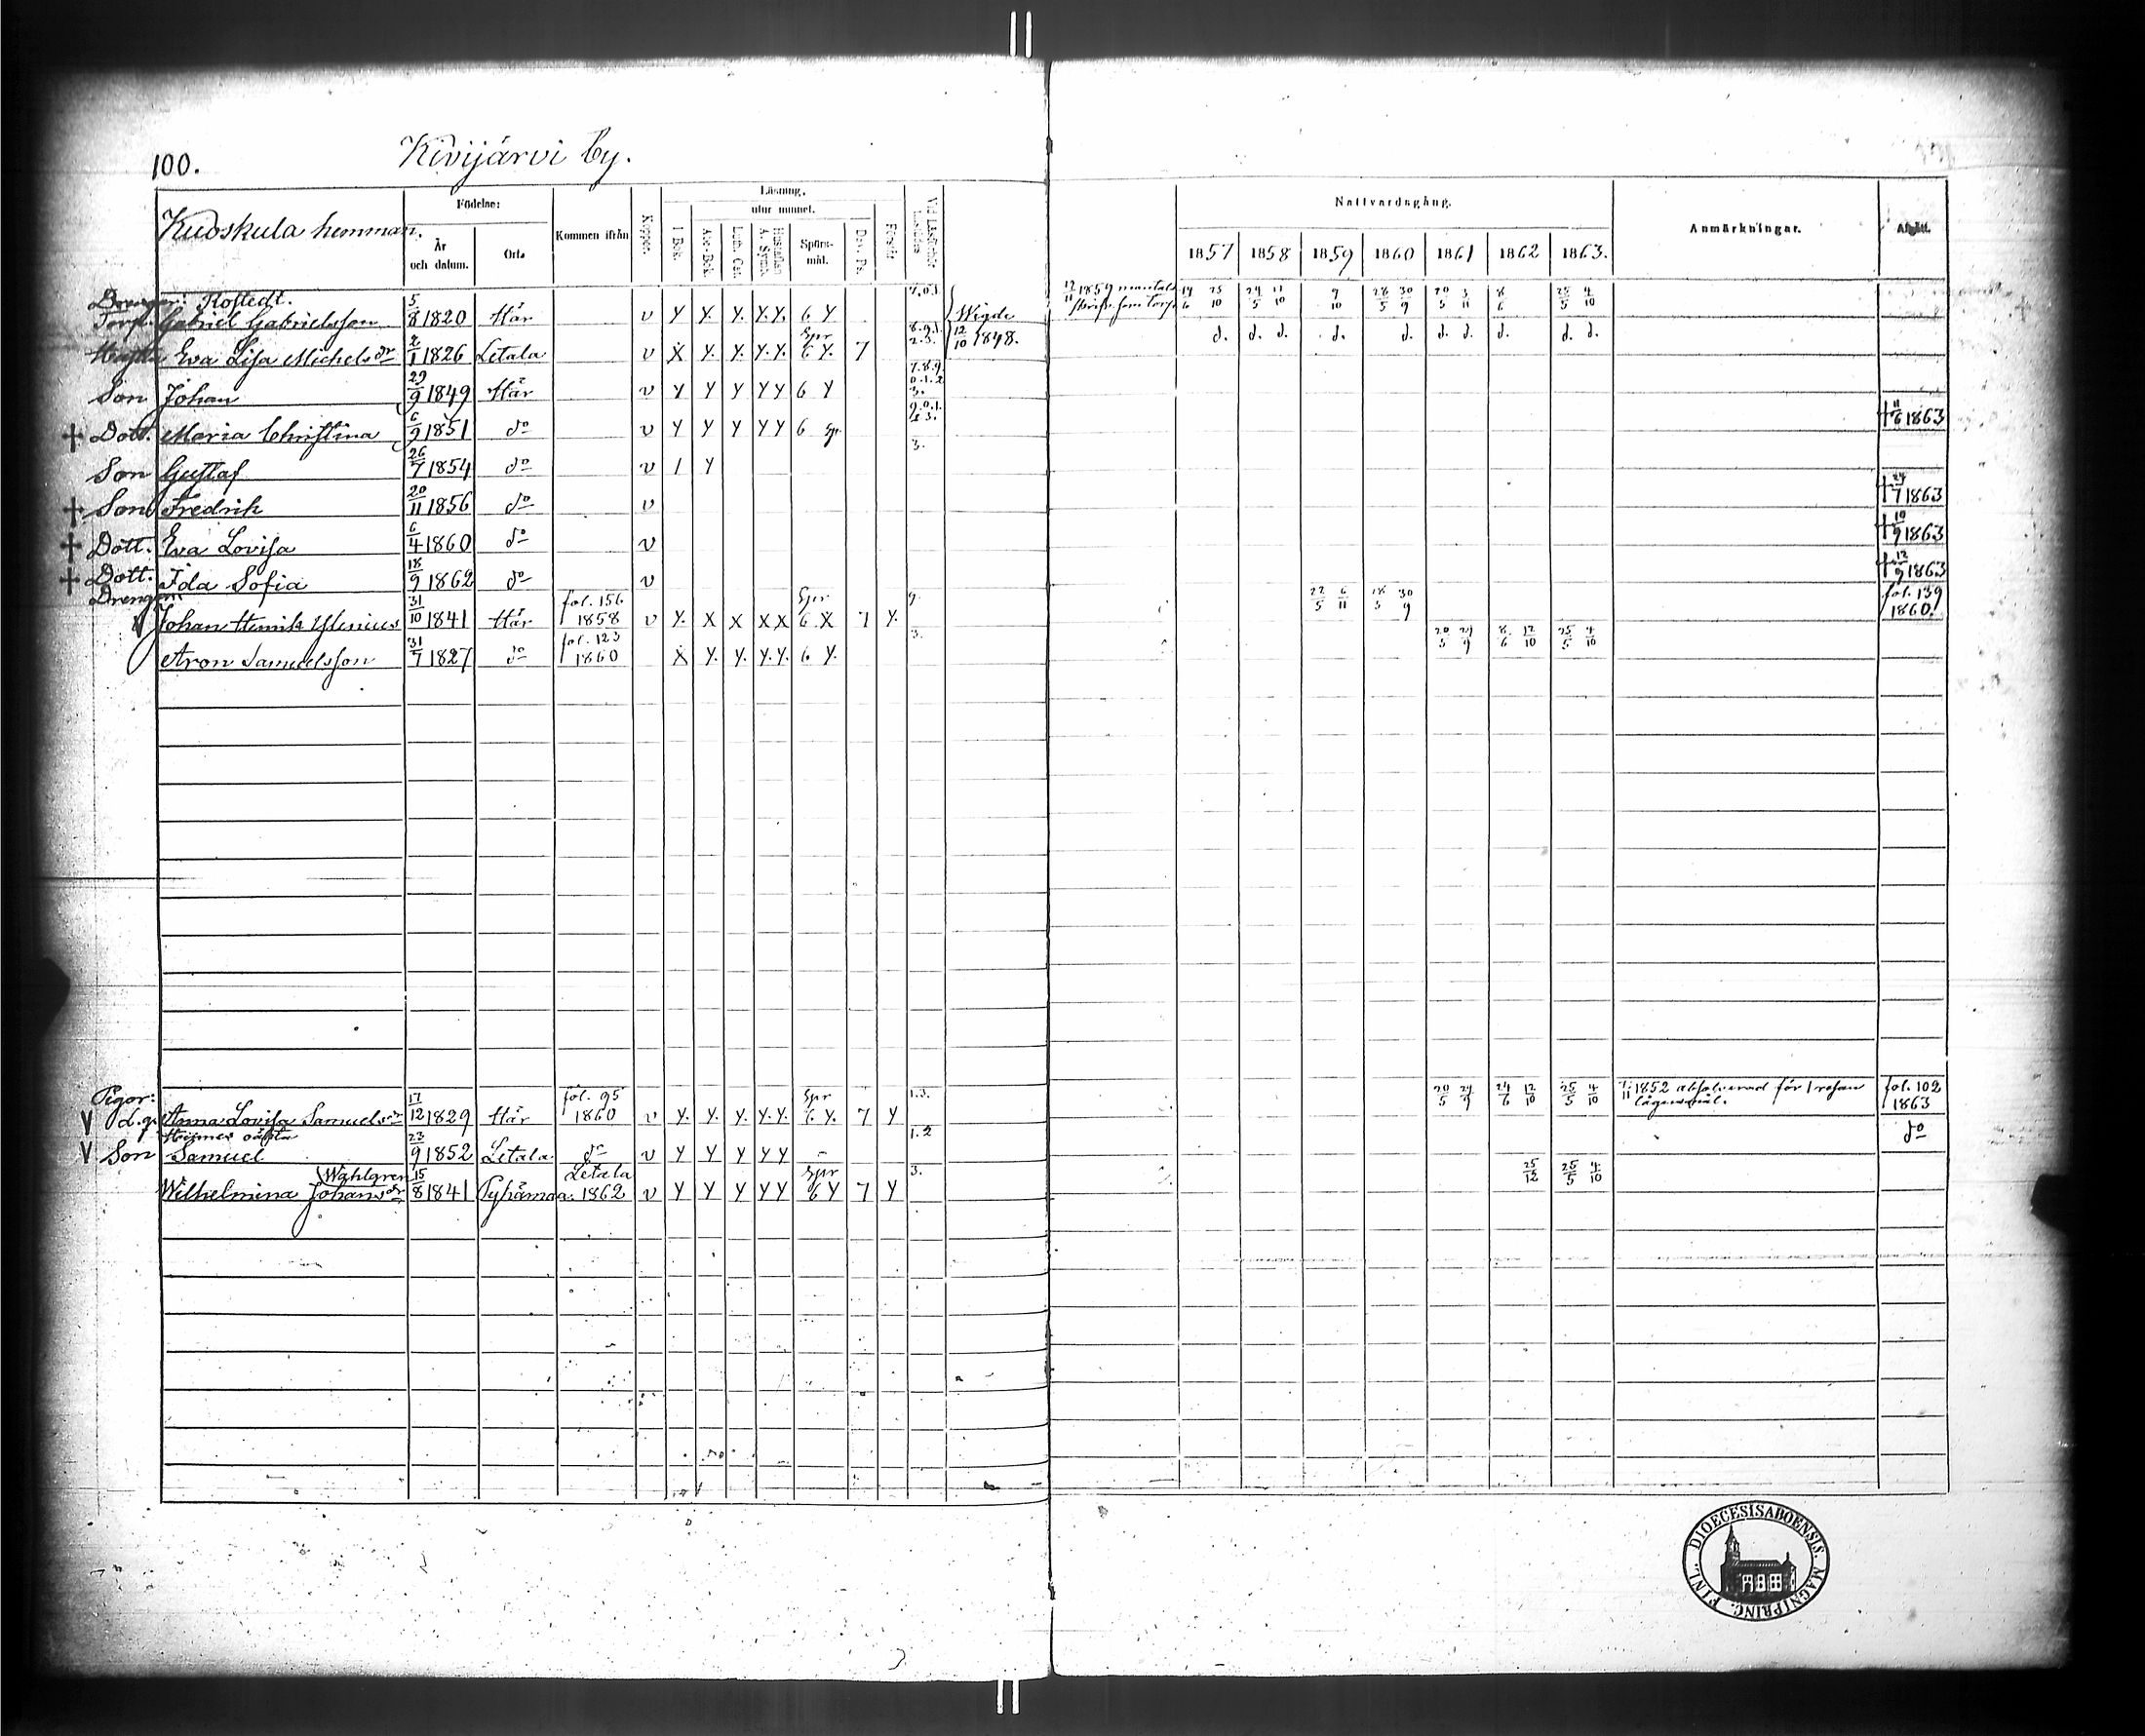 100.
Kivijärvi by.
Kudoskula hemman.
Födelse:
År och datum.
Ort.
Kommen ifrån
Koppor.
Läsning.
utur minnet.
I Bok.
Abc-Bok.
Luth. Cat.
Hustaflan A. Symb.
Spörs-mål.
Dav. Ps.
Förstår
Nattvardsgång.
1857 1858 1859 1860 1861 1862 1863.
Anmärkningar.
Afgått.
Drengar: Rostedt.
Torp. Gabriel Gabrielsson 5/8 1820 Här v Y Y. Y. Y.Y. 6 Y 7.0.1. Wigde 12/10 1848. 12/11 1859 mantals 25/10 24/5 11/10 9/10 28/5 30/9 20/5 3/11 8/6 25/5 4/10
Hustru Eva Lisa Michelsdr 2/1 1826 Letala v X Y. Y. Y.Y. Spr 6 Y. 7 8.9.1. 2.3. d. d. d. d. d. d. d. d. d. d.
Son Johan 29/9 1849 Här v Y Y Y Y Y 6 Y 7.8.9. 0.1.2. 3.
† Dott. Maria Christina 6/9 1851 do v Y Y Y Y Y 6 Spr 9.0.1. 2.3. † 11/6 1863
Son Gustaf 26/7 1854 do v 1 Y 3.
† Son Fredrik 20/11 1856 do v † 24/7 1863
† Dott. Eva Lovisa 6/4 1860 do v † 10/9 1863
† Dott. Ida Sofia 18/9 1862 do v † 12/9 1863
Drengar:
Johan Henrik Ylenius 31/10 1841 Här fol. 156 1858 v Y. X X X X Spr 6 X 7 Y. 9. 22/5 6/11 18/5 30/9 fol. 139 1860.
Aron Samuelsson 31/7 1827 do fol. 123 1860 X Y. Y. Y.Y. 6 Y. 3. 20/5 29/9 8/6 12/10 25/5 4/10
Pigor:
V Anna Lovisa Samuelsdr 17/12 1829 Här fol. 95 1860 v Y. Y. Y. Y.Y. Spr 6 Y. 7 Y 1.3. 20/5 29/9 24/6 12/10 25/5 4/10 1852 absolverad för 1 resan lägersmål. fol. 102 1863
V Son Samuel 23/9 1852 Letala do v Y Y Y Y Y - 1.2 do
Wahlgren
Wilhelmina Johansdr 15/8 1841 Pyhämaa Letala 1862 v Y Y Y Y Y Spr 6 Y 7 Y 3. 25/12 25/5 4/10
DIOECESIS ABOENSIS. MAGNI PRINC. FINL.